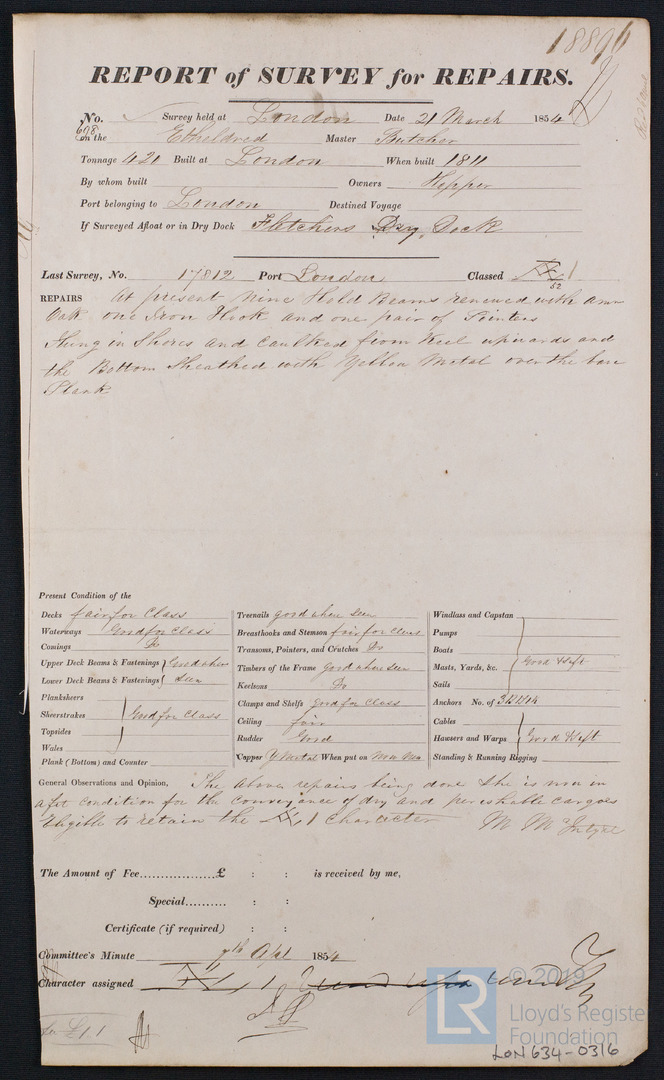 18896
REPORT of SURVEY for REPAIRS.
No. 698 Survey held at London Date 21 March 1854
on the Etheldred Master Butcher
Tonnage 421 Built at London When built 1811
By whom built Owners Hepper
Port belonging to London Destined Voyage
If Surveyed Afloat or in Dry Dock Fletchers Dry Dock
Last Survey, No. 17812 Port London Classed Æ 1
52
REPAIRS At present Nine Hold Beams renewed with Amn
Oak one Iron Hook and one pair of Pointers
Hung in Shores and Caulked from Keel upwards and
the Bottom Sheathed with Yellow Metal over the bare
Plank
Present Condition of the
Decks fair for Class
Waterways Good for Class
Comings Do
Upper Deck Beams & Fastenings Good when
Lower Deck Beams & Fastenings seen
Planksheers
Sheerstrakes Good for Class
Topsides
Wales
Plank (Bottom) and Counter
Treenails good when seen
Breasthooks and Stemson fair for Class
Transoms, Pointers, and Crutches Do
Timbers of the Frame Good when seen
Keelsons Do
Clamps and Shelfs good for Class
Ceiling fair
Rudder Good
Copper Y Metal When put on Now New
Windlass and Capstan
Pumps
Boats
Masts, Yards, &c. Good &
Sails
Anchors No. of
Cables
Hawsers and Warps Good &
Standing & Running Rigging
General Observations and Opinion, The above repairs being done she is now in
a fit condition for the conveyance of dry and perishable cargoes
Eligible to retain the Æ 1 Character M McIntyre
The Amount of Fee..................£ : : is received by me,
Special.......... : :
Certificate (if required) : :
Committee's Minute 7th April 1854
Character assigned Æ 1
£1.1
© 2019
LR
Lloyd's Register
Foundation
LON634-0316